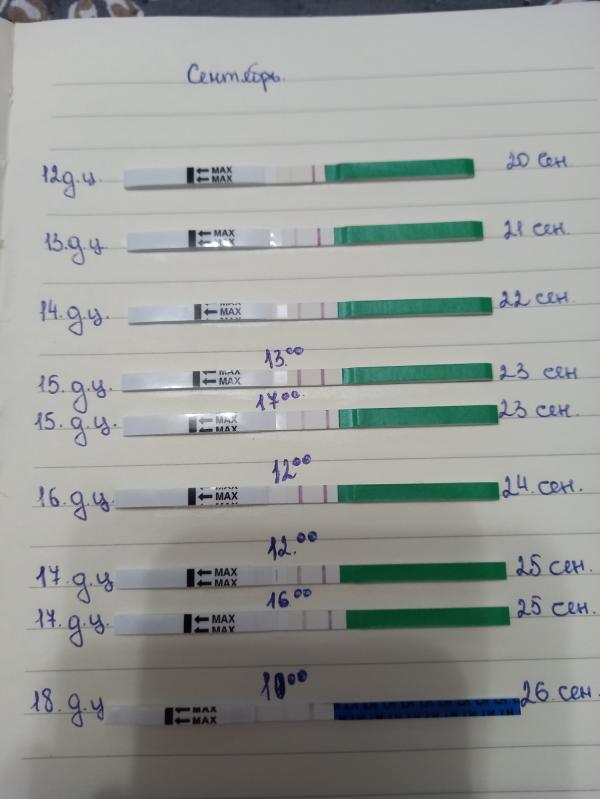 Сентябрь.
12 д.ц. MAX MAX 20 сен
13. д.ц. MAX 21 сен.
14. д.ц. MAX MAX 22 сен.
13.00
15. д.ц. MAX MAX 23 сен
17.00
15. д.ц. MAX MAX 23 сен.
12.00
16. д.ц. MAX MAX 24. сен.
12.00
17. д.ц. MAX MAX 25 сен.
16.00
17. д.ц. MAX MAX 25 сен.
18. д.ц MAX MAX 26. сен.